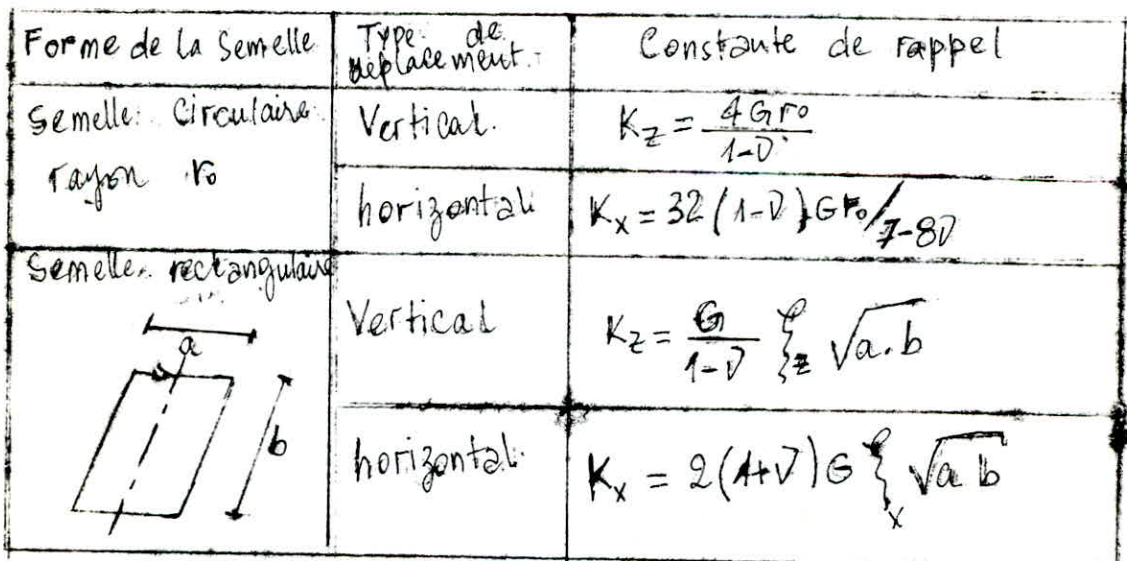 Forme de la Semelle
Type de déplacement.
Constante de rappel
Semelle: Circulaire
rayon r₀
Vertical.
K_z = 4Gr₀ / 1-ν
horizontal
K_x = 32(1-ν)Gr₀/7-8ν
Semelle rectangulaire
a
b
Vertical
K_z = G / 1-ν ξ_z √a.b
horizontal.
K_x = 2(1+ν)G ξ_x √a b